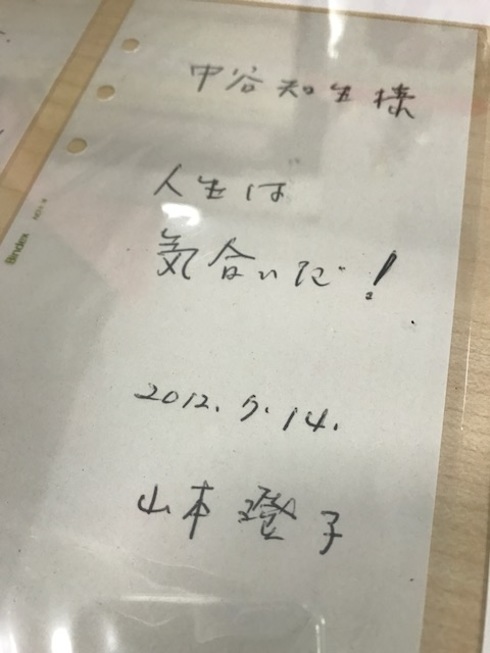 中谷知生様
人生は
気合いだ!
2012.7.14.
山本澄子
Bindex